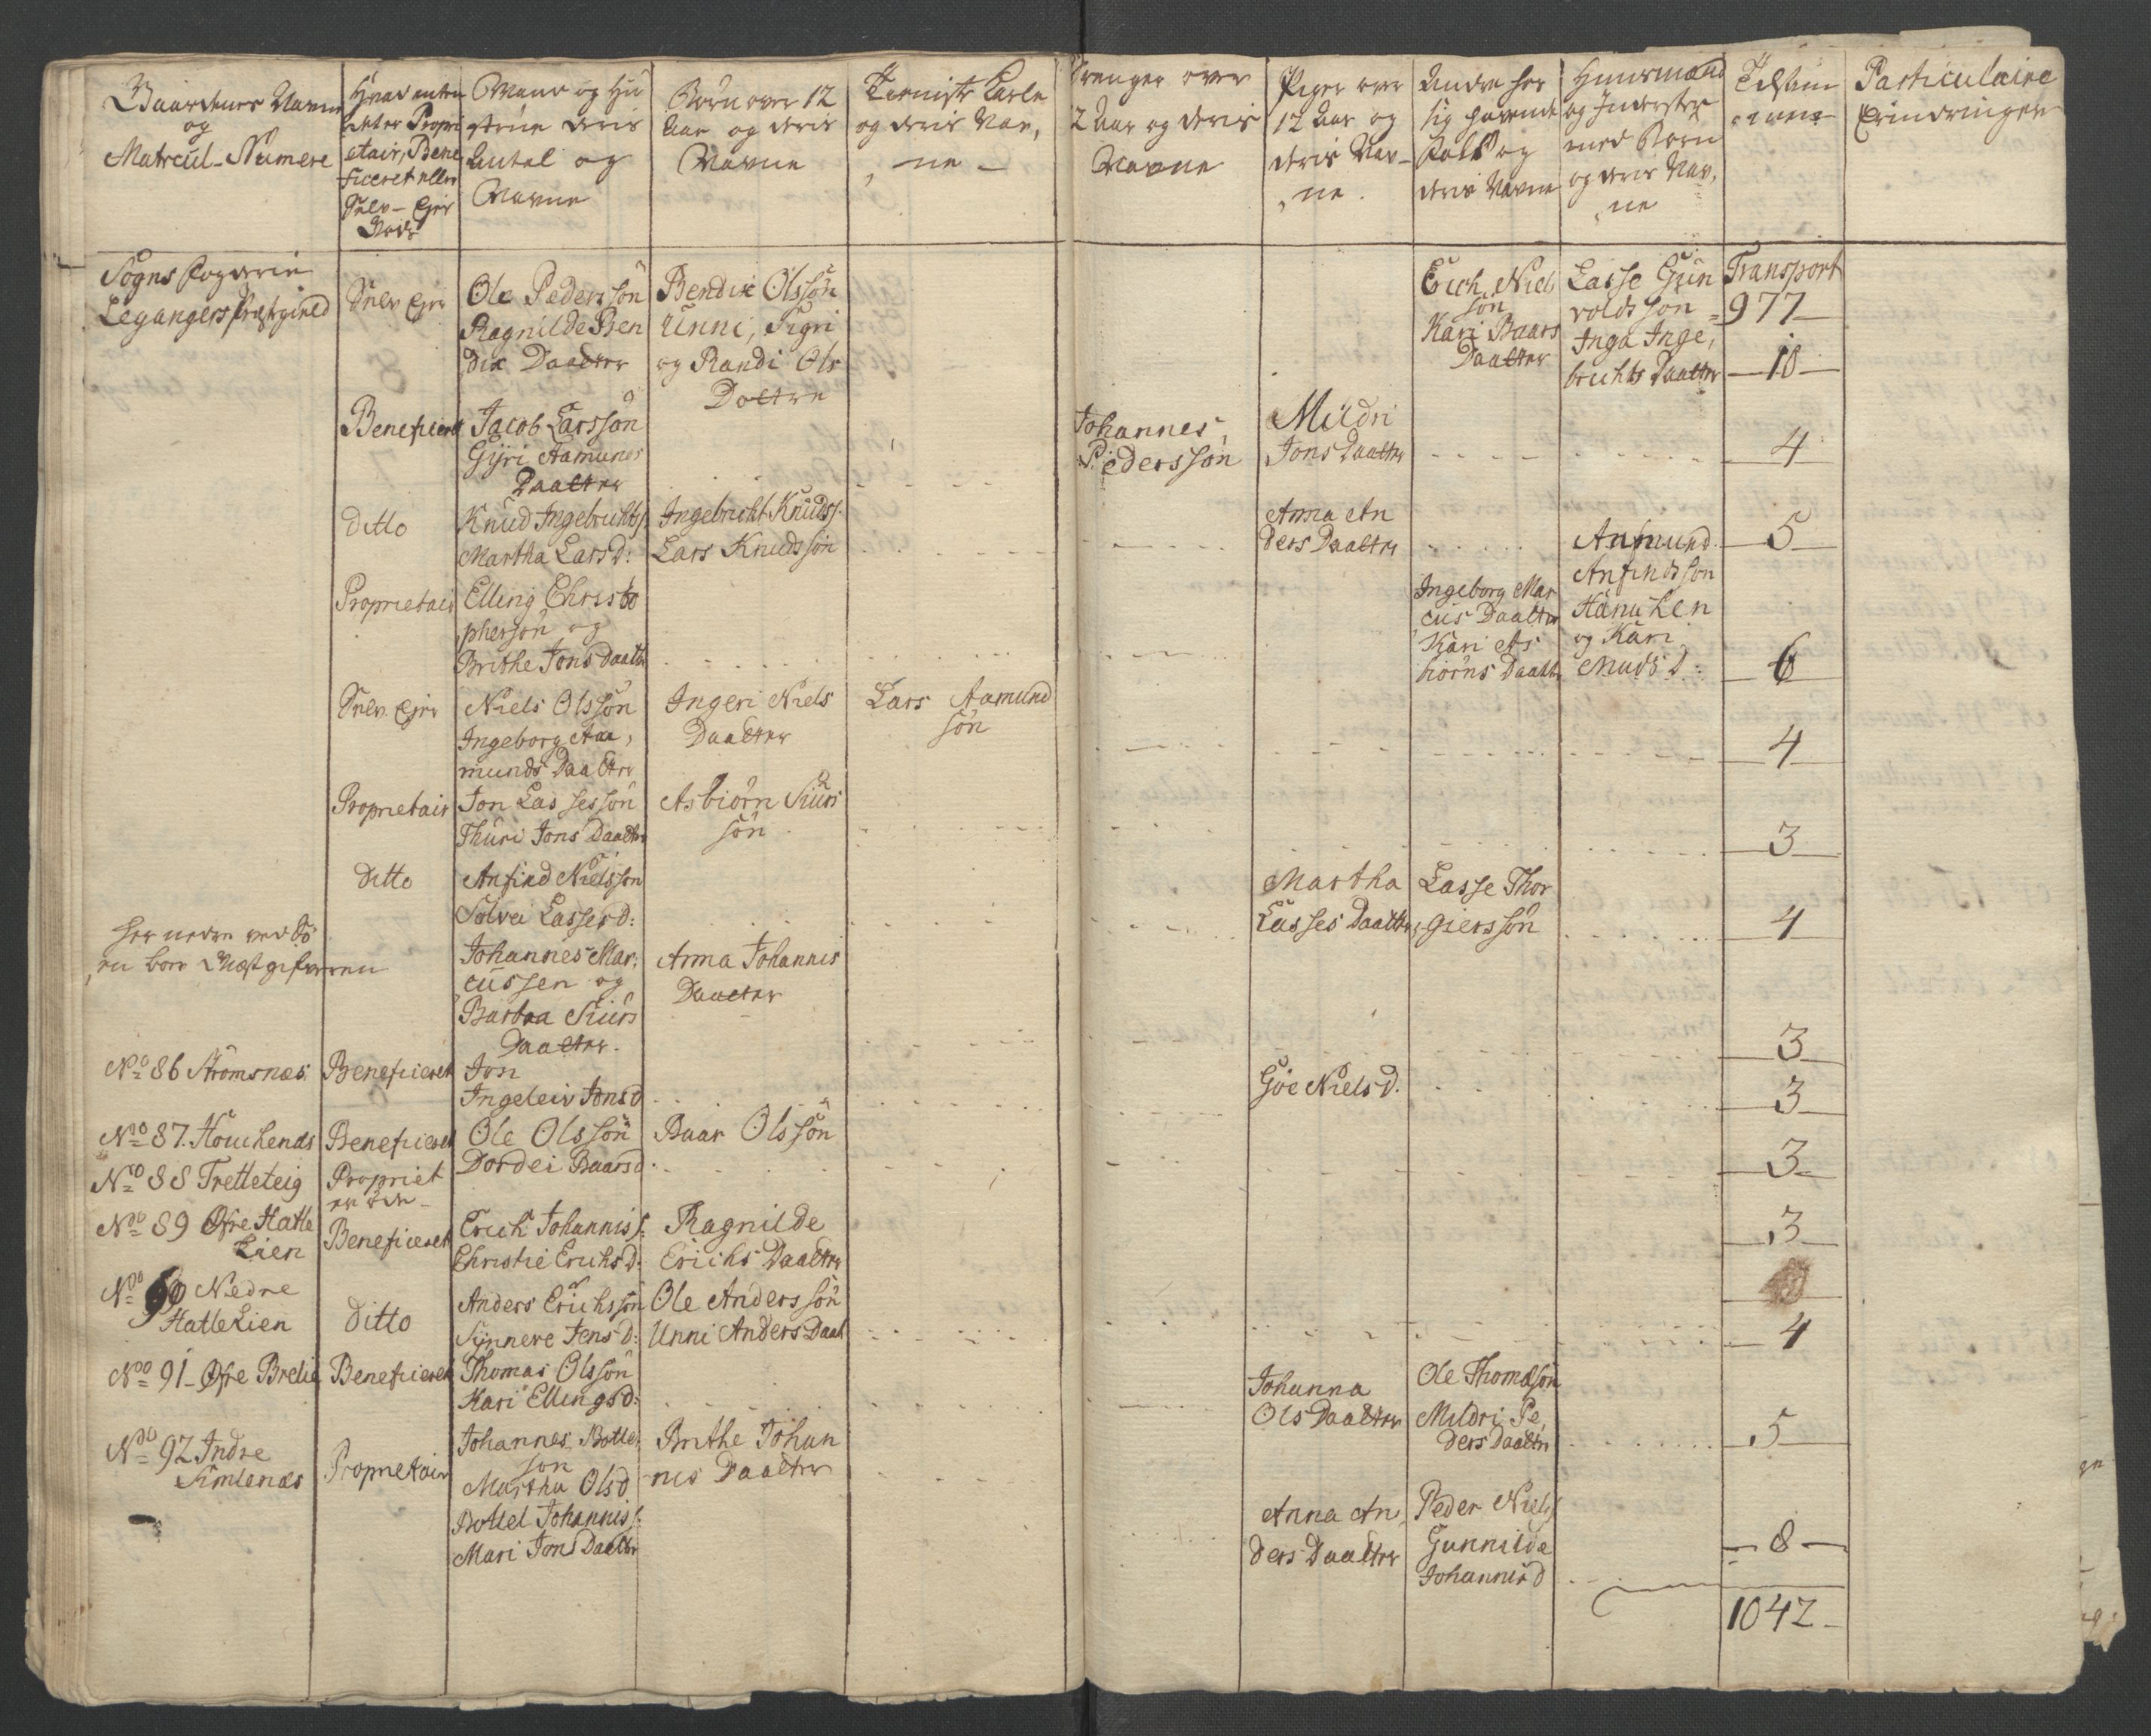 Gaardenes Navne
og
Matrcul-Numere
Hvad enten
det er Propri
etair, Bene
ficeret eller
Selv-Ejer
Gods
Mand og Hu
strue deris
Antal og
Navne
Børn over 12
Aar og deris
Navne
Tieniste Karle
og deris Nav,
ne
Drenger over
12 Aar og deris
Navne
Piger over
12 Aar og
deris Nav-
ne
Andre for
sig havende
Folk og
deris Navne
Huusmænd
og Inderster
med Børn
og deris Nav,
ne
Tilsam
men
Particulaire
Erindringer
Sogns Fogderie
Legangers Præstegield
Selv Ejer
Ole Pedersøn
Ragnilde Ben
dix Daatter
Bendix Olssøn
Unni, Sigri
og Randi Ols
Døttre
Erich Niels
søn
Kari Baars
Daatter
Lasse Gun
voldssøn
Inga Inge,
brichts Daatter
Transport
977
10
Beneficeret
Jacob Larssøn
Gyri Aamunds
Daatter
Johannes
Pederssøn
Mildri
Jons Daatter
4
Ditto
Knud Ingebrichts
Martha Lars D:
Ingebricht Knuds s.
Lars Knudssøn
Anna An
ders Daatter
5
Proprietair
Elling Christo
phersøn og
Brithe Jons Daatter
Ingeborg Mar
cus Daatter
Kari As
biørns Daatter
Anfindssøn
og Kari
Mads D:
6
Selv Ejer
Niels Olssøn
Ingeborg Aa,
munds Daatter
Ingeri Niels
Daatter
Lars Aamund
søn
4
Proprietair
Jon Lassessøn
Thuri Jons Daatter
Asbiørn Siurs
søn
3
Ditto
Anfind Nielssøn
Solvei Lasses D:
Martha
Lasses Daatter
Lasse Thor
gierssøn
4
Johannes Mar,
cussen og
Barbra Siurs
Daatter
Anna Johannis
Daatter
3
No 86 Strømsnæs
Beneficeret
Jon
Ingeleiv Jons D
Gøe Niels D.
3
No 87. Houchenæs
Beneficeret
Ole Olssøn
Dordei Baars d
Baar Olssøn
3
No 88 Tretteteig
Propriet
er øde
No 89 Øfre Hatle
Lien
Beneficeret
Erich Johannis s:
Christie Erichs D:
Ragnilde
Erichs Daatter
3
No 90 Nedre
Hatle Lien
Ditto
Anders Erichssøn
Synneve Jens D:
Ole Anderssøn
Unni Anders Daat
4
No 91 Øfre Brelie
Beneficeret
Thomas Olssøn
Kari Ellings D:
Johanna
Ols Daatter
Ole Thomæsøn
Mildri Pe,
ders Daatter
5
No 92 Indre
Simlenæs
Proprietair
Johannes Botle,
søn
Martha Ols D
Bottel Johannis s:
Mari Jons Daatter
Brithe Johan
nis Daatter
Anna An,
ders Daatter
Peder Niels s
Gunnilde
Johannis D
8
1042